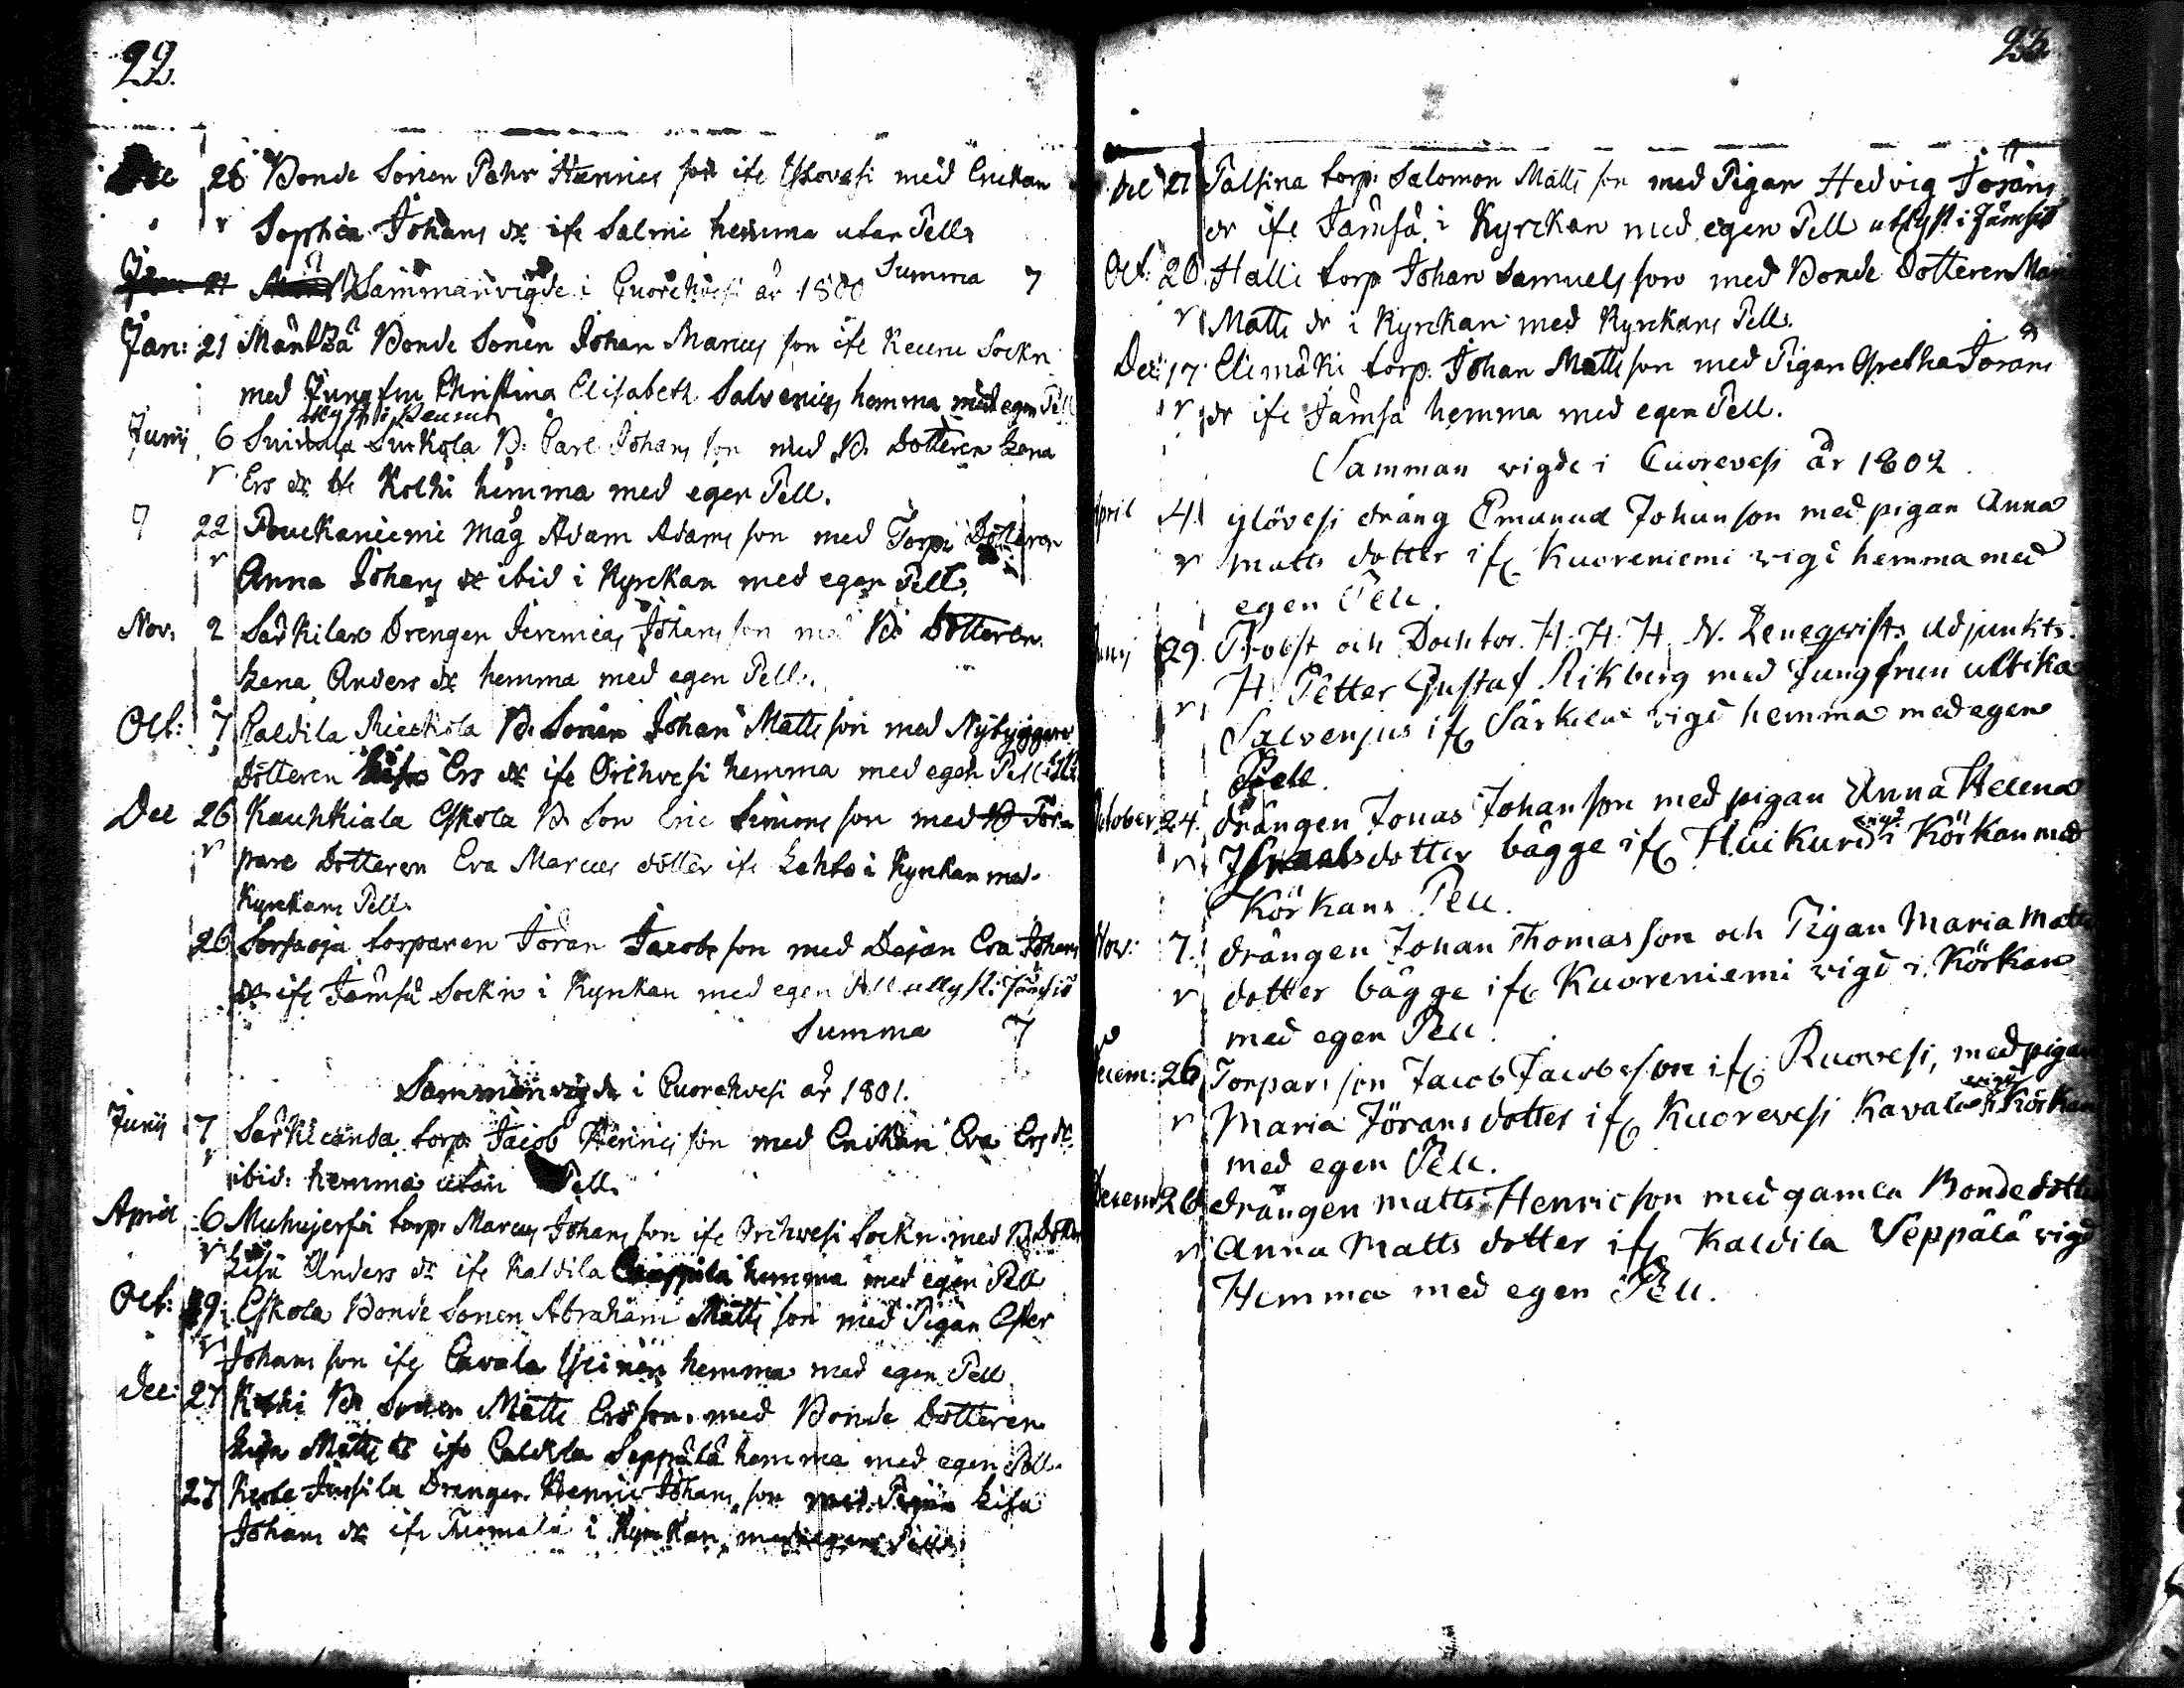 22.
Dec 26 Bonde Sonen Pehr Hennics son ifr Ylövesi med Enckan
r Sophia Johans dr ifr Salmi hemma utan Pell
Jan: 21 Sammanvigde i Quorehvesi år 1800 Summa 7
Jan: 21 Mäntzä Bonde Sonen Johan Marcus son ifr Keuru Sockn
med Jungfru Christina Elisabeth Salvenius hemma med egen Pell
utlyst i Keuruu
Junij 6 Suinula Suckola B. Carl Johans son med B. Dotteren Lena
r Ers dr ifr Kolhi hemma med egen Pell.
22 Pouckaniemi Måg Adam Adams son med Torp: Dotteren
r Anna Johans dr ibid i Kyrckan med egen Pell.
Nov. 2 Särkilax Drengen Jeremias Johans son med B. Dotteren
Lena Anders dr hemma med egen Pell.
Oct: 7 Paldila Rieckola B. Sonen Johan Matts son med Nybyggare
dotteren Ers dr ifr Orihvesi hemma med egen Pell
Dec 26 Kauhkiala Eskola B. Son Eric Simons son med Tor=
r pare Dotteren Eva Marcus dotter ifr Lehto i Kyrkan med
Kyrckans Pell.
26 torparen Jöran Jacobs son med Dejan Eva Johans
dr ifr Jämsä Sockn i Kyrkan med egen Pell utlyst i Jämsiö
Summa 7
Sammanvigde i Quorehvesi år 1801.
Junij 7 Särkicanda torp. Jacob Hennics son med Enckan Eva Ers dr
r ibid: hemma utan Pell.
April 6 Muhujerfvi torp. Marcus Johans son ifr Orihvesi Sockn med B. Dotter
r Lisa Anders dr ifr Kaldila Seppälä hemma med egen Pell
Oct: 19. Eskola Bonde Sonen Abraham Matts son med Pigan Ester
r Johans son ifr Cavala hemma med egen Pell
Dec: 27 Kolhi B. Sonen Matts Ers son med Bonde Dotteren
Matts dr ifr Caldila Seppälä hemma med egen Pell.
27 Jussila Drengen Henric Johans son med Pigan Lisa
Johans dr ifr Tuomala i Kyrckan med egen Pell.
23.
Dec 27 Palsina torp: Salomon Matts son med Pigan Hedvig Jörans
dr ifr Jämsä i Kyrckan med egen Pell utlyst i Jämsiö
Oct: 20 Halli torp Johan Samuels son med Bonde Dotteren Mari
r Matts dr i Kyrckan med Kyrckans Pell.
Dec: 17 Elimäki torp: Johan Matts son med Pigan Gretha Jörans
r dr ifr Jämsä hemma med egen Pell.
Samman vigde i Cuorevesi år 1802.
April 4. ylövesi dräng Emanuel Johanson med pigan Anna
r Matts dotter ifr Kuoreniemi vigd hemma med
egen Pell.
Junij 29. Probst och Docktor. H. H. H. N. Leneqvists Adjunkts
r H. Petter Gustaf Rikberg med Jungfrun Ulrika
Salvenjus ifr Särkilax vigd hemma med egen
Pell.
October 24. drängen Jonas Johanson med pigan Anna Helena
r Israelsdotter bägge ifr Huikuri vigd i Körkan med
Körkans Pell.
Nov: 7. drängen Johan Thomasson och Pigan Maria Matts
r dotter bägge ifr Kuoreniemi vigd i Körkan
med egen Pell.
Decem: 26 Torpars son Jacob Jacobsson ifr Ruovesi, med pigan
r Maria Jörans dotter ifr Kuorevesi Kavala vigd i Körkan
med egen Pell.
Decem 26 drängen Matts Henricson med gamla Bonde dotter
r Anna Matts dotter ifr Kaldila Seppälä vigd
Hemma med egen Pell.